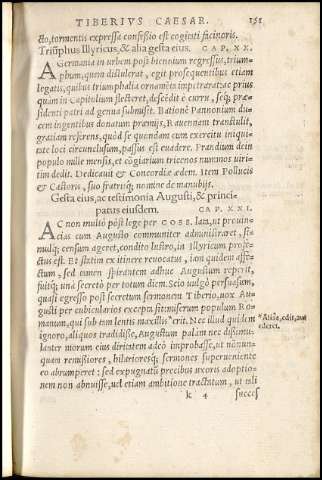 TIBERIVS CAESAR. 151
cto, tormentis expressa confessio est cogitati facinoris.
Triũphus Illyricus, & alia gesta eius. CAP. XX.
A Germania in urbem post biennium regressus, trium-
phum, quem distulerat, egit prosequentibus etiam
legatis, quibus triumphalia ornamẽta impetrarat: ac prius
quàm in Capitolium flecteret, descẽdit è curru, seq́; præ-
sidenti patri ad genua submisit. Batonẽ Pannonium du-
cem ingentibus donatum præmijs, Rauennam transtulit,
gratiam referens, quòd se quondam cum exercitu iniqui-
tate loci circunclusum, passus est euadere. Prandium dein
populo mille mensis, et cõgiarium tricenos nummos uiri-
tim dedit. Dedicauit & Concordiæ ædem. Item Pollucis
& Castoris, suo fratrisq́; nomine de manubijs.
Gesta eius, ac testimonia Augusti, & princi-
patus eiusdem. CAP. XXI.
AC non multò pòst lege per COSS. lata, ut prouin-
cias cum Augusto communiter administraret, si-
mulq́; censum ageret, condito lustro, in Illyricum profe-
ctus est. Et statim ex itinere reuocatus, iam quidem affe-
ctum, sed tamen spirantem adhuc Augustum reperit,
fuitq́; unà secretò per totum diem. Scio uulgò persuasum,
quasi egresso post secretum sermonem Tiberio, uox Au-
gusti per cubicularios excepta sit: miserum populum Ro-
manum, qui sub tam lentis maxillis erit. Nec illud quidem
ignoro, aliquos tradidisse, Augustum palam nec dissimu-
lanter morum eius diritatem adeò improbasse, ut nõnun-
quam remissiores, hilarioresq́; sermones superueniente
eo abrumperet: sed expugnatũ precibus uxoris adoptio-
nem non abnuisse, uel etiam ambitione tractum, ut tali
k 4 succes